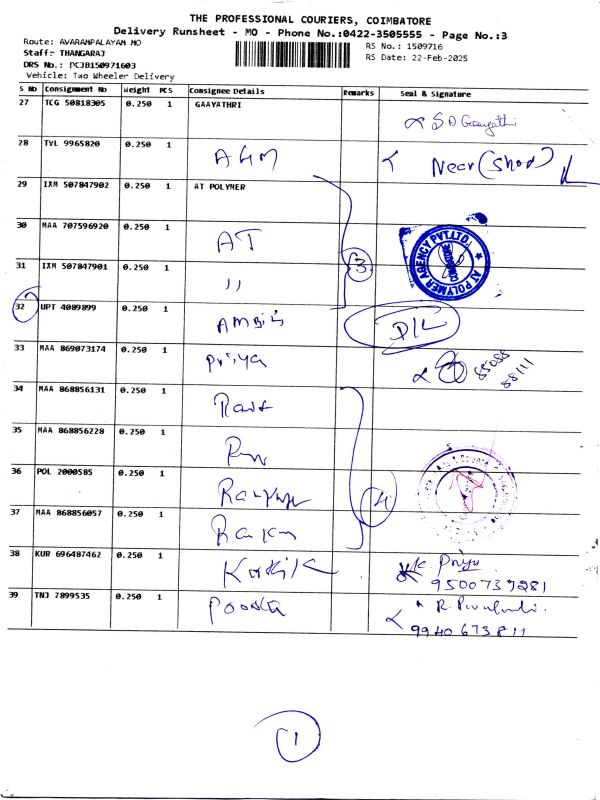 THE PROFESSIONAL COURIERS, COIMBATORE
Delivery Runsheet - MO - Phone No.:0422-3505555 - Page No.:3
Route: AVARAMPALAYAM MO
RS No.: 1509716
Staff: THANGARAJ
RS Date: 22-Feb-2025
DRS No.: PCJB150971603
Vehicle: Two Wheeler Delivery
S No Consignment No Weight PCS Consignee Details Remarks Seal & Signature
27 TCG 50818305 0.250 1 GAAYATHRI S D Gaayathri
28 TVL 9965820 0.250 1 AGM Near (Shop)
29 IXM 507847902 0.250 1 AT POLYMER
30 MAA 707596920 0.250 1 AT
3
AT POLYMER AGENCY PVT.LTD.
31 IXM 507847901 0.250 1 ,,
32 UPT 4089899 0.250 1 D/L
33 MAA 869073174 0.250 1 Priya
34 MAA 868856131 0.250 1
35 MAA 868856228 0.250 1
36 POL 2000585 0.250 1
4
37 MAA 868856057 0.250 1
38 KUR 696487462 0.250 1 Priya
9500737281
39 TNJ 7899535 0.250 1
9940673811
1